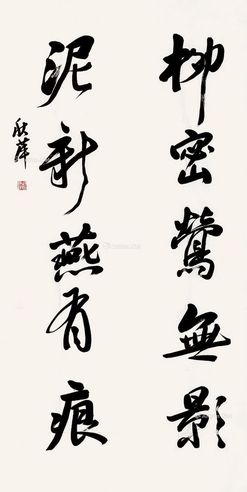 柳密鶯無影
泥新燕有痕